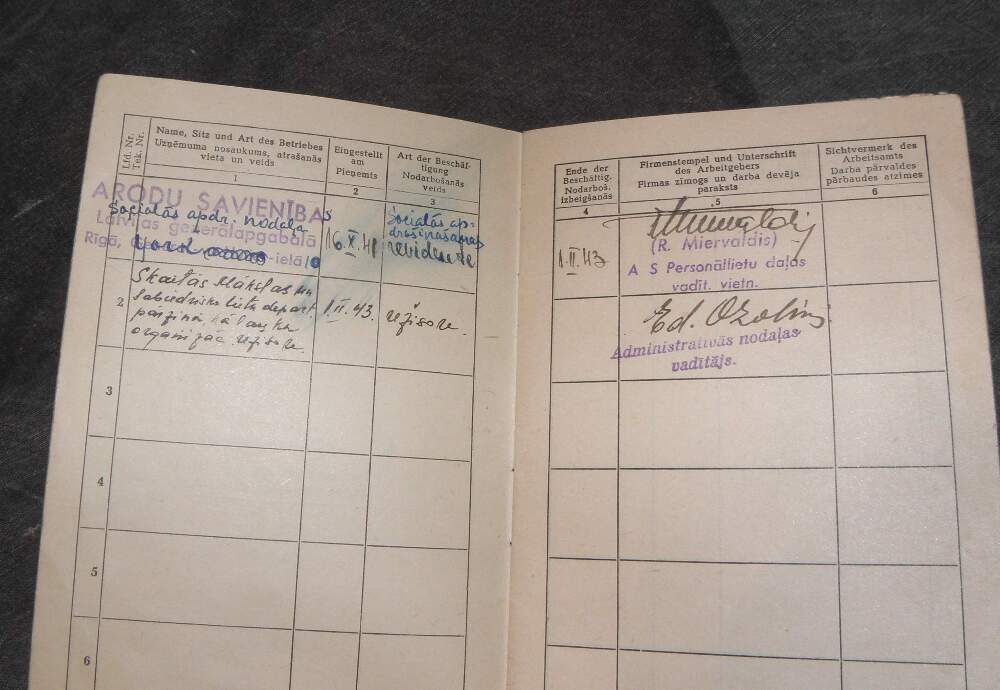 Lfd. Nr.
Tek. Nr.
Name, Sitz und Art des Betriebes
Uzņēmuma nosaukums, atrašanās
vieta un veids
Eingestellt
am
Pieņemts
Art der Beschäf-
tigung
Nodarbošanās
veids
1
2
3
ARODU SAVIENĪBAS
Sociālās apdr. nodaļa
Latvijas ģenerālapgabalā
Rīgā,
ielā
16.X.41
Sociālās ap-
drošināšanas
revidente
2
Skaitās Mākslas un
Sabiedrisko lietu depart.
organizāc. režisore.
1.II.43.
režisore.
3
4
5
6
Ende der
Beschäftig.
Nodarboš.
izbeigšanās
Firmenstempel und Unterschrift
des Arbeitgebers
Firmas zīmogs un darba devēja
paraksts
Sichtvermerk des
Arbeitsamts
Darba pārvaldes
pārbaudes atzīmes
4
5
6
1.II.43
(R. Miervaldis)
A S Personāllietu daļas
vadīt. vietn.
Ed. Ozoliņš
Administratīvās nodaļas
vadītājs.